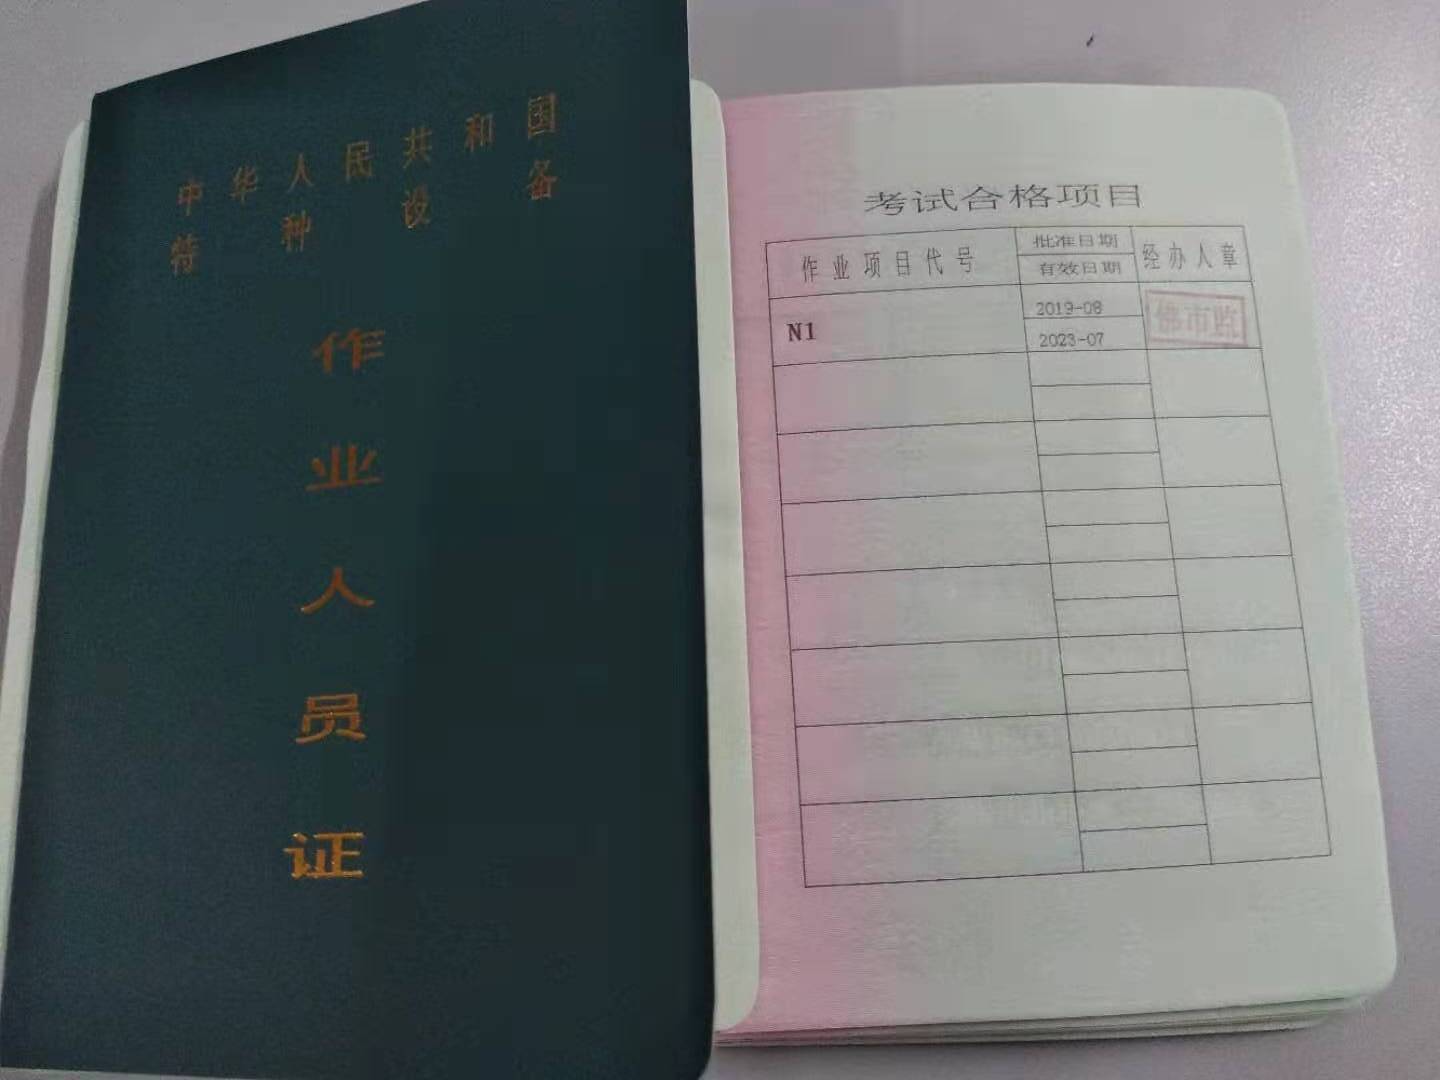 中华人民共和国
特种设备
作业人员证
考试合格项目
作业项目代号
批准日期
有效日期
经办人章
N1
2019-08
2023-07
佛市监